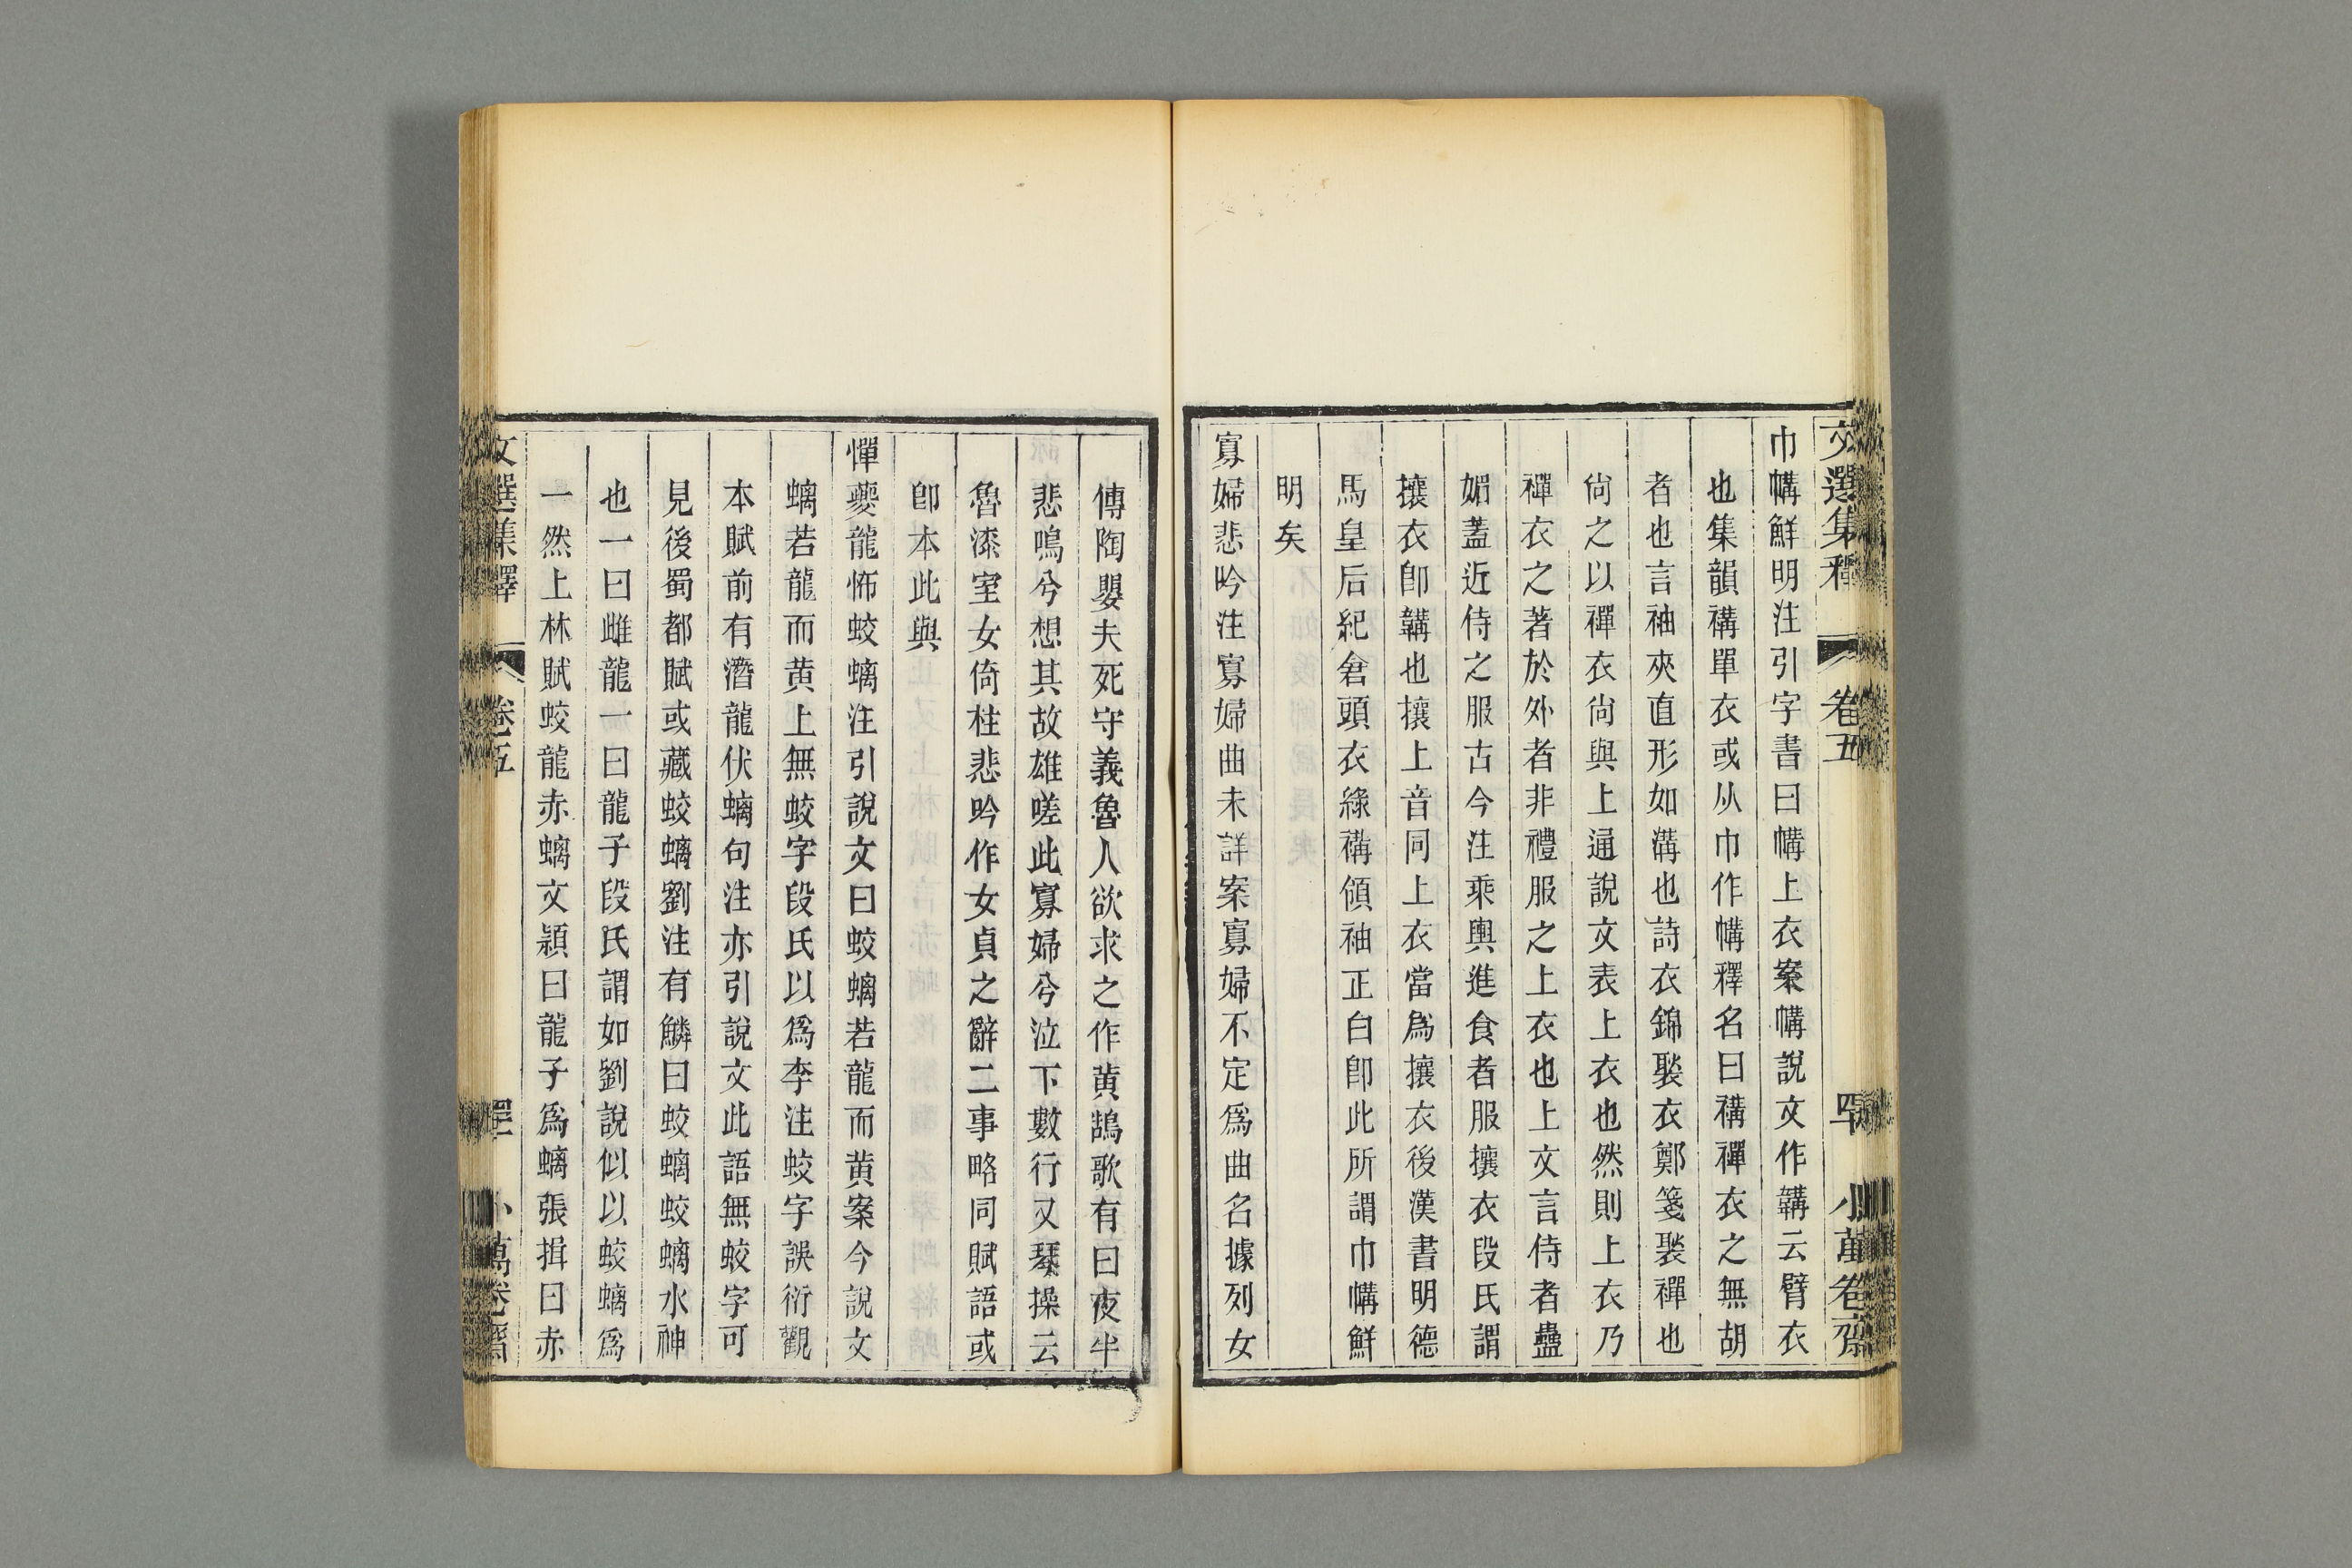 文選集釋 卷五 四十 小萬卷齋
巾幬鮮明注引字書曰幬上衣案幬說文作韝云臂衣
也集韻褠單衣或从巾作幬釋名曰褠禪衣之無胡
者也言袖夾直形如溝也詩衣錦褧衣鄭箋褧禪也
尙之以禪衣尙與上通說文表上衣也然則上衣乃
禪衣之著於外者非禮服之上衣也上文言侍者蠱
媚蓋近侍之服古今注乘輿進食者服攘衣段氏謂
攘衣卽韝也攘上音同上衣當爲攘衣後漢書明德
馬皇后紀倉頭衣綠褠領袖正白卽此所謂巾幬鮮
明矣
寡婦悲吟注寡婦曲未詳案寡婦不定爲曲名據列女
傳陶嬰夫死守義魯人欲求之作黄鵠歌有曰夜半
悲鳴兮想其故雄嗟此寡婦兮泣下數行又琴操云
魯漆室女倚柱悲吟作女貞之辭二事略同賦語或
卽本此與
憚夔龍怖蛟螭注引說文曰蛟螭若龍而黄案今說文
螭若龍而黄上無蛟字段氏以爲李注蛟字誤衍觀
本賦前有潛龍伏螭句注亦引說文此語無蛟字可
見後蜀都賦或藏蛟螭劉注有鱗曰蛟螭蛟螭水神
也一曰雌龍一曰龍子段氏謂如劉說似以蛟螭爲
一然上林賦蛟龍赤螭文穎曰龍子爲螭張揖曰赤
文選集釋 卷五 小萬卷齋